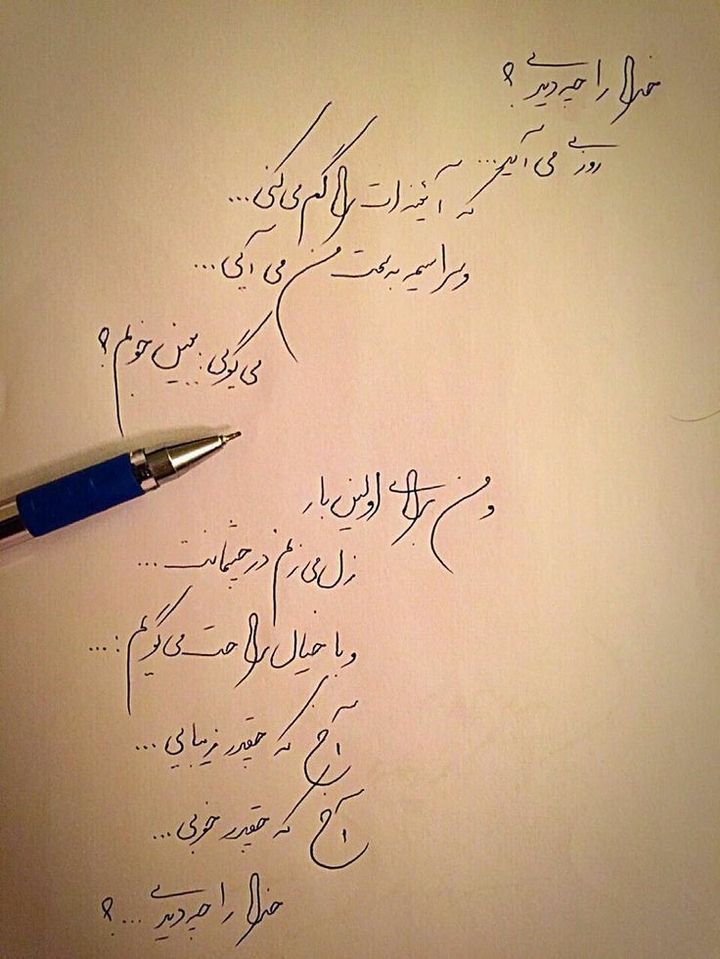 خدا را چه دیدی ؟
روزی می آید...
که آئینه ات را گم می کنی...
و سراسیمه به سمت من می آیی...
می گویی: ببین خوبم ؟
و من برای اولین بار
زل می زنم در چشمانت...
و با خیال راحت می گویم :...
آخ که چقدر زیبایی...
آخ که چقدر خوبی...
خدا را چه دیدی ...؟